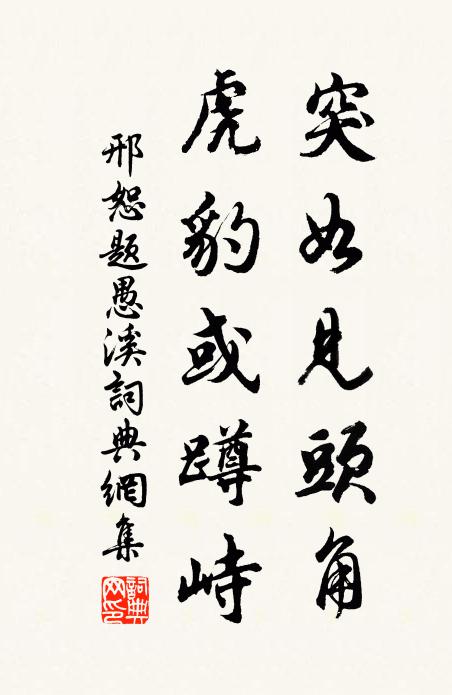 突如見頭角
虎豹或蹲峙
邢恕題愚溪詞典網集
詞典
网印